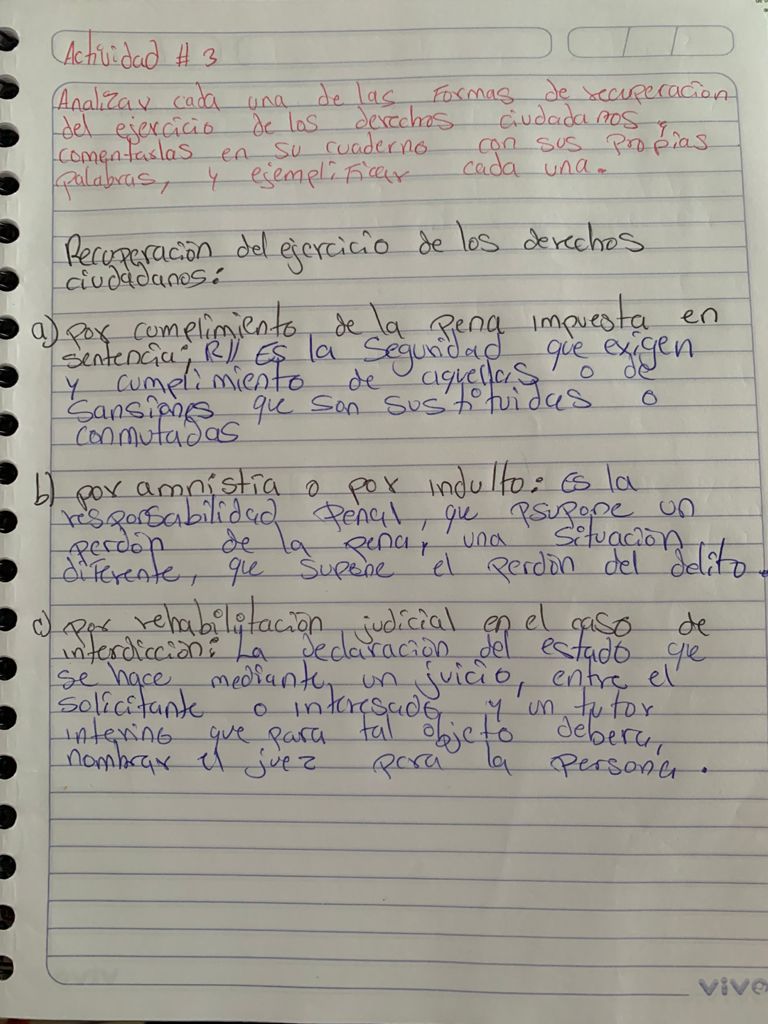 Actividad # 3
Analizar cada una de las Formas de recuperacion
del ejercicio de los derechos ciudadanos,
comentarlas en su cuaderno con sus propias
palabras, y ejemplificar cada una.
Recuperación del ejercicio de los derechos
ciudadanos:
a) por cumplimiento de la pena impuesta en
sentencia; R// Es la Seguridad que exigen
y cumplimiento de aquellas o de
Sansiones que son sustituidas o
conmutadas
b) por amnistia o por indulto: Es la
responsabilidad Penal, que psupone un
perdón de la pena, una Situación
diferente, que supone el perdón del delito.
c) por rehabilitación judicial en el caso de
interdicción: La declaración del estado que
se hace mediante un juicio, entre el
solicitante o interesado y un tutor
interino que para tal objeto debera,
nombrar el juez para la persona.
vive